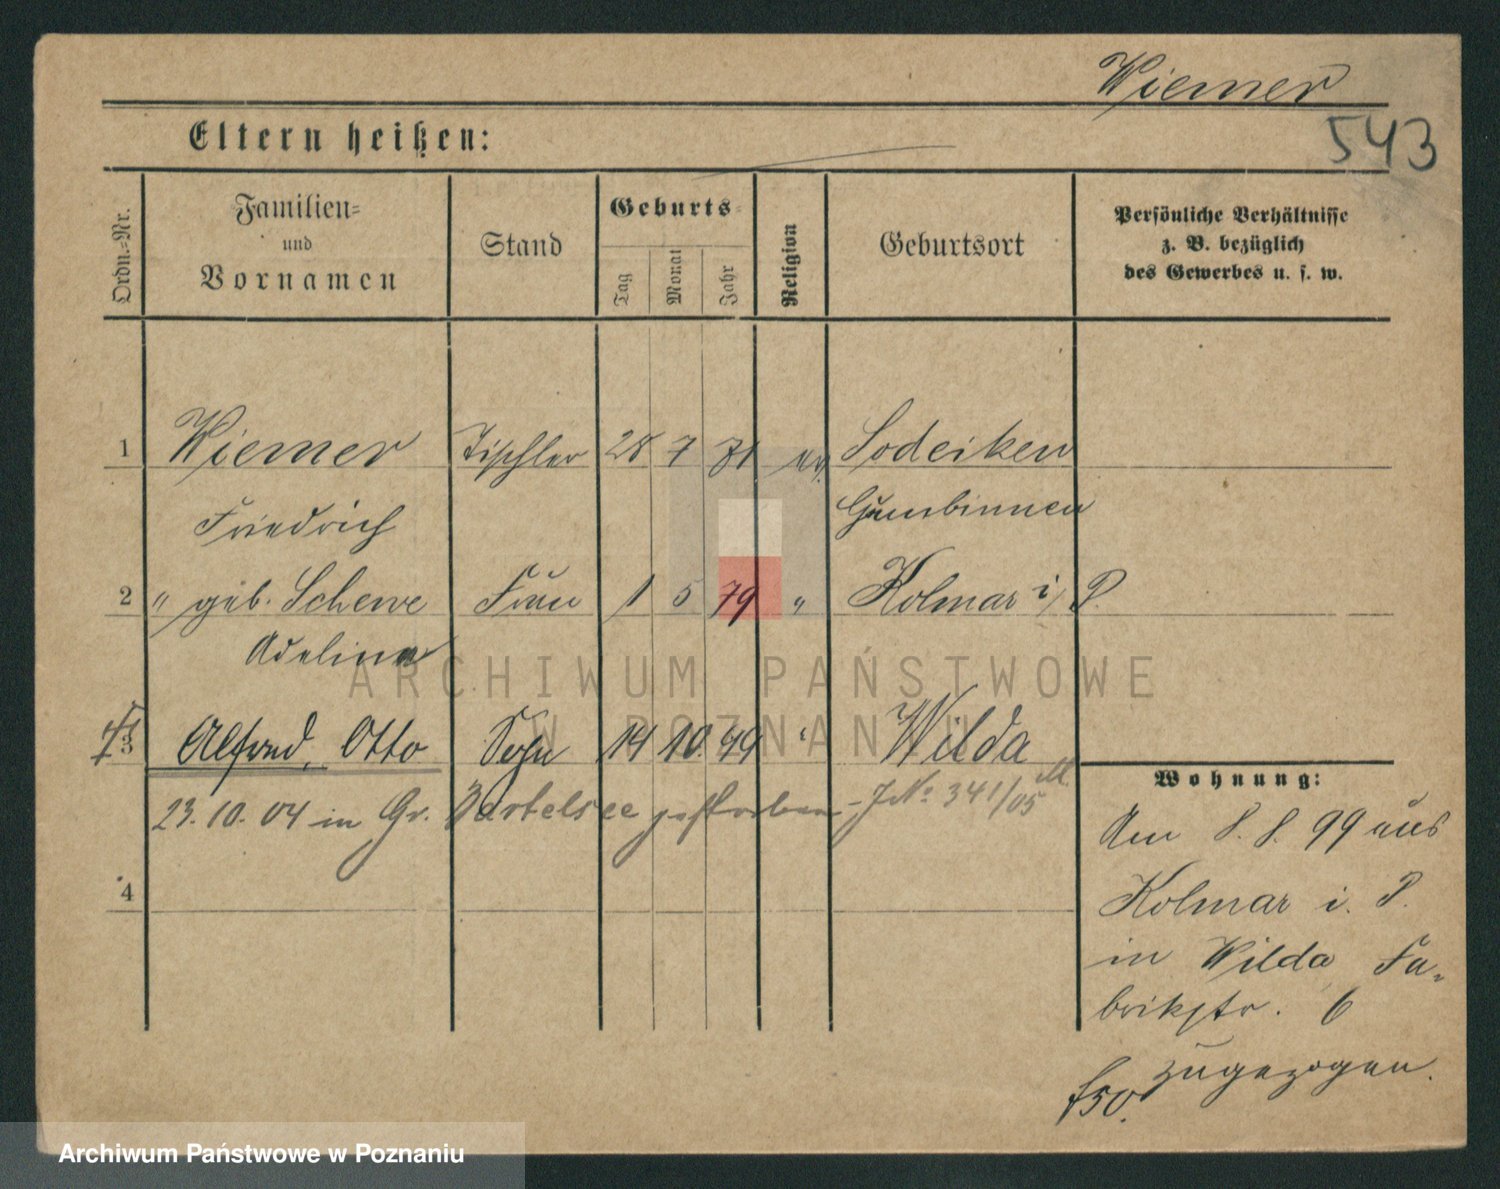 Wiemer
543
Eltern heißen:
Ordn.=Nr.
Familien=
und
Vornamen
Stand
Geburts=
Tag
Monat
Jahr
Religion
Geburtsort
Persönliche Verhältnisse
z. B. bezüglich
des Gewerbes u. s. w.
1 Wiemer Tischler 28 7 71 ev. Sodeiken
Friedrich Gumbinnen
2 " geb. Schewe Frau 1 5 79 " Kolmar i/P.
Adeline
3 Alfred, Otto Sohn 14 10. 99 " Wilda
23. 10. 04 in Gr. Bartelsee gestorben - J No. 341/05
4
Wohnung:
Am 8. 8. 99 aus
Kolmar i. P.
in Wilda Fa-
brikstr. 6
zugezogen.
f50.
ARCHIWUM PAŃSTWOWE
W POZNANIU
Archiwum Państwowe w Poznaniu